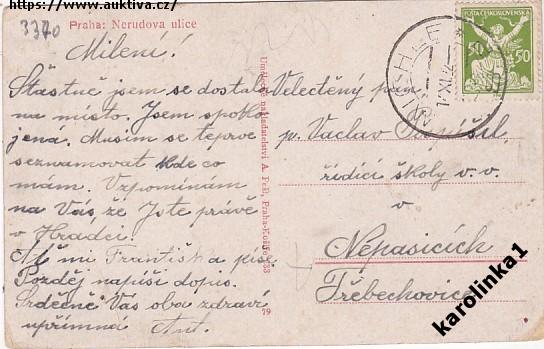 https://www.auktiva.cz/
3370
Praha: Nerudova ulice
Milení!
Šťastně jsem se dostal
na místo. Jsem spoko
jená. Musím se teprve
seznamovat kde co
mám. Vzpomínám
na Vás, že Jste právě
v Hradci.
Ať mi František píše.
Později napíši dopis.
Srdečně Vás oba zdraví
upřímná Ant.
Umělecké nakladatelství A. Feb, Praha-Košíře 33
79
POŠTA ČESKOSLOVENSKÁ
50 50
MICHLE
Velectěný pan
p. Vaclav Pospíšil
řídící školy v. v.
v
Nepasicích
Třebechovice
karolinka1